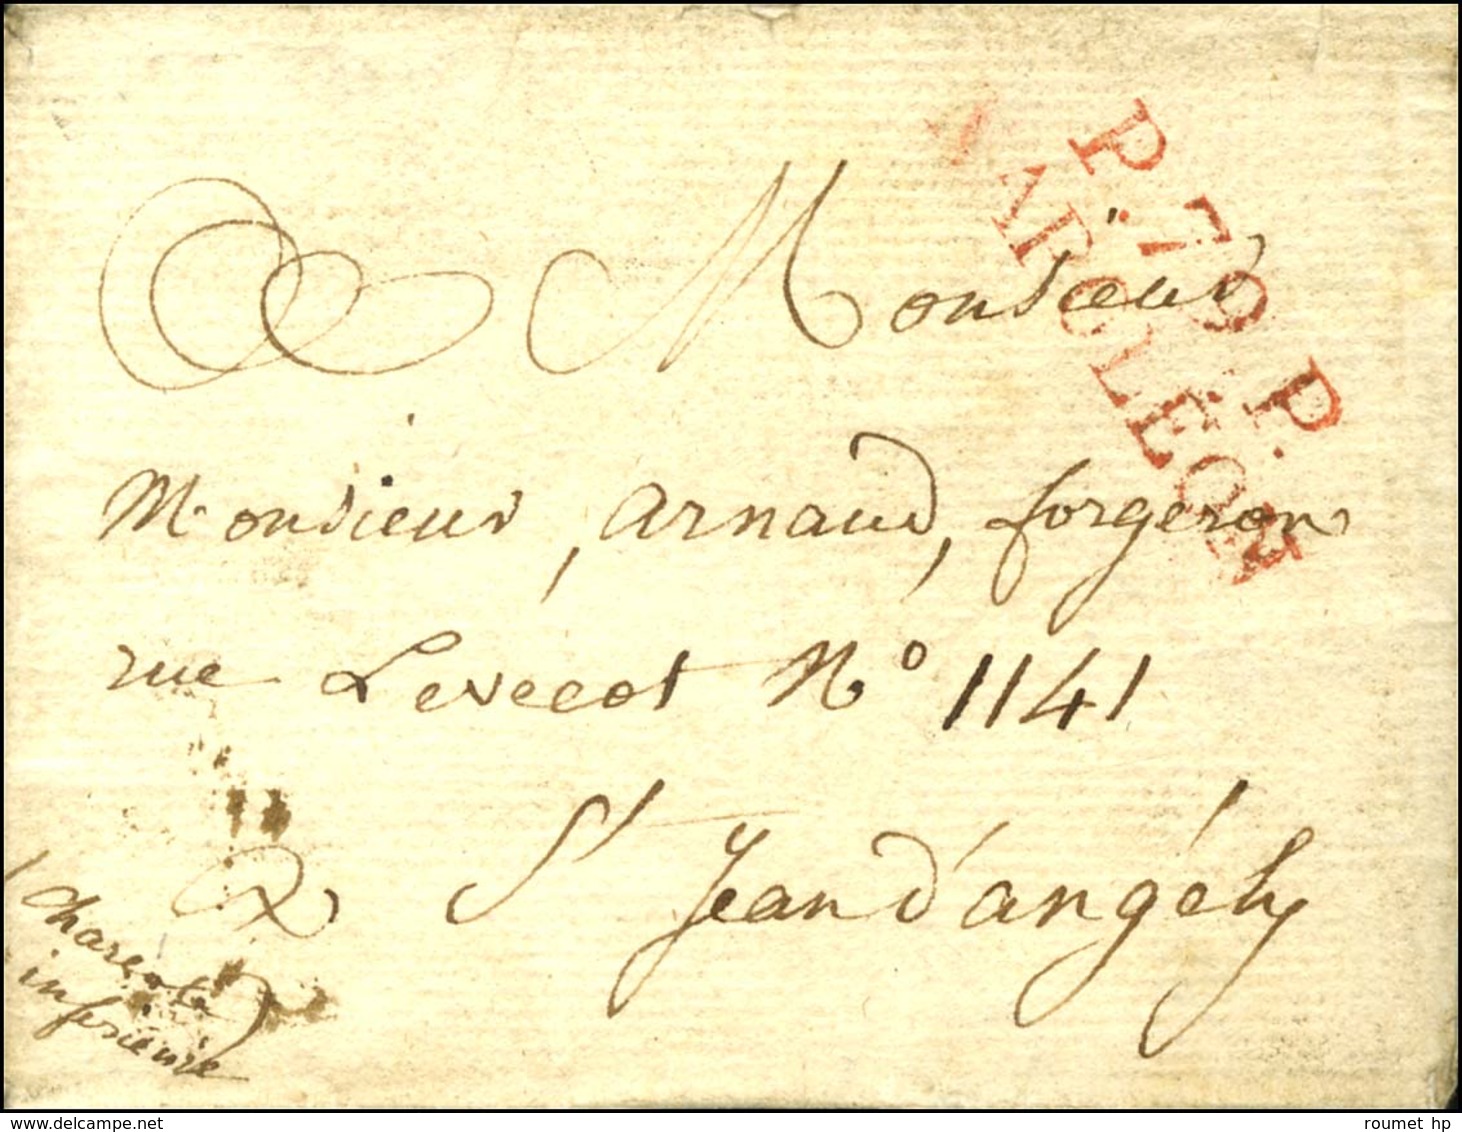 P.79.P.
NAPOLÉON
Monsieur
Monsieur, arnaud, forgeron
rue Levecot N° 1141
a St Jean d'angély
charente
inférieure
roumet hp